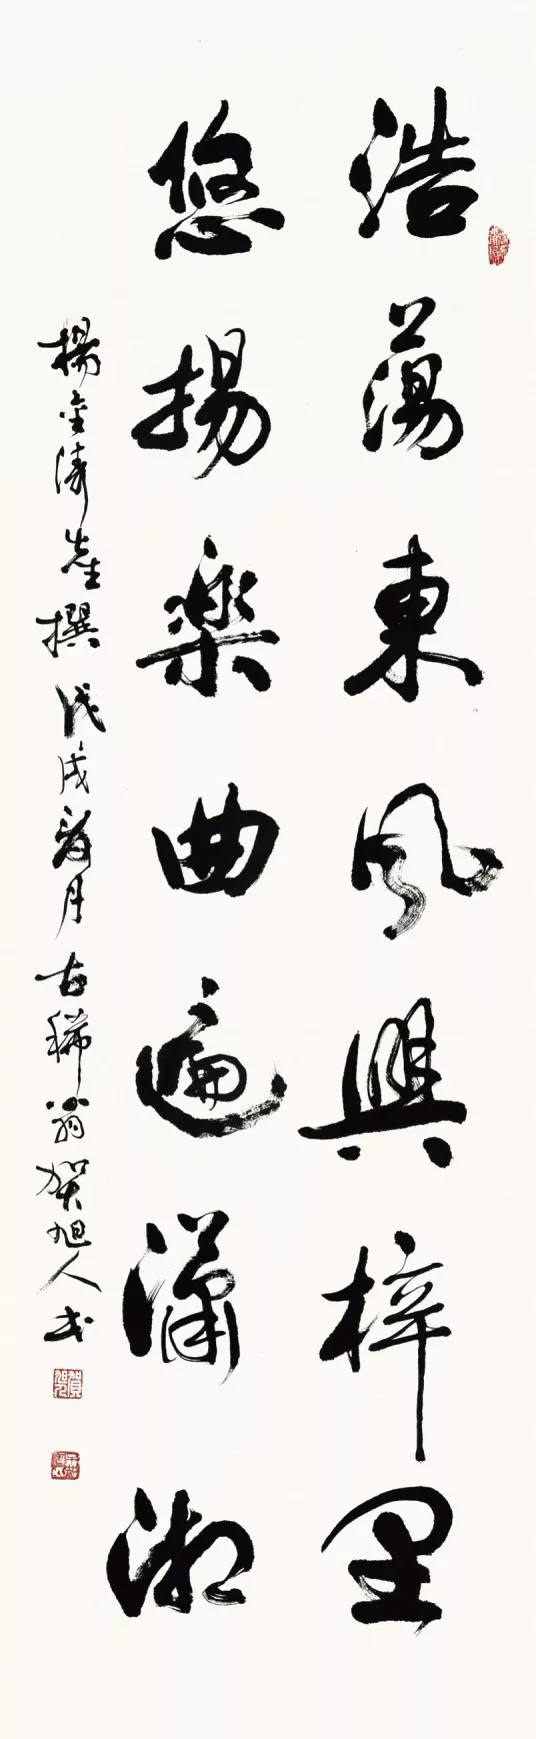 浩蕩東風興梓里
悠揚樂曲遍瀟湘
楊金濤先生撰 戊戌 月 古稀翁賀旭人書